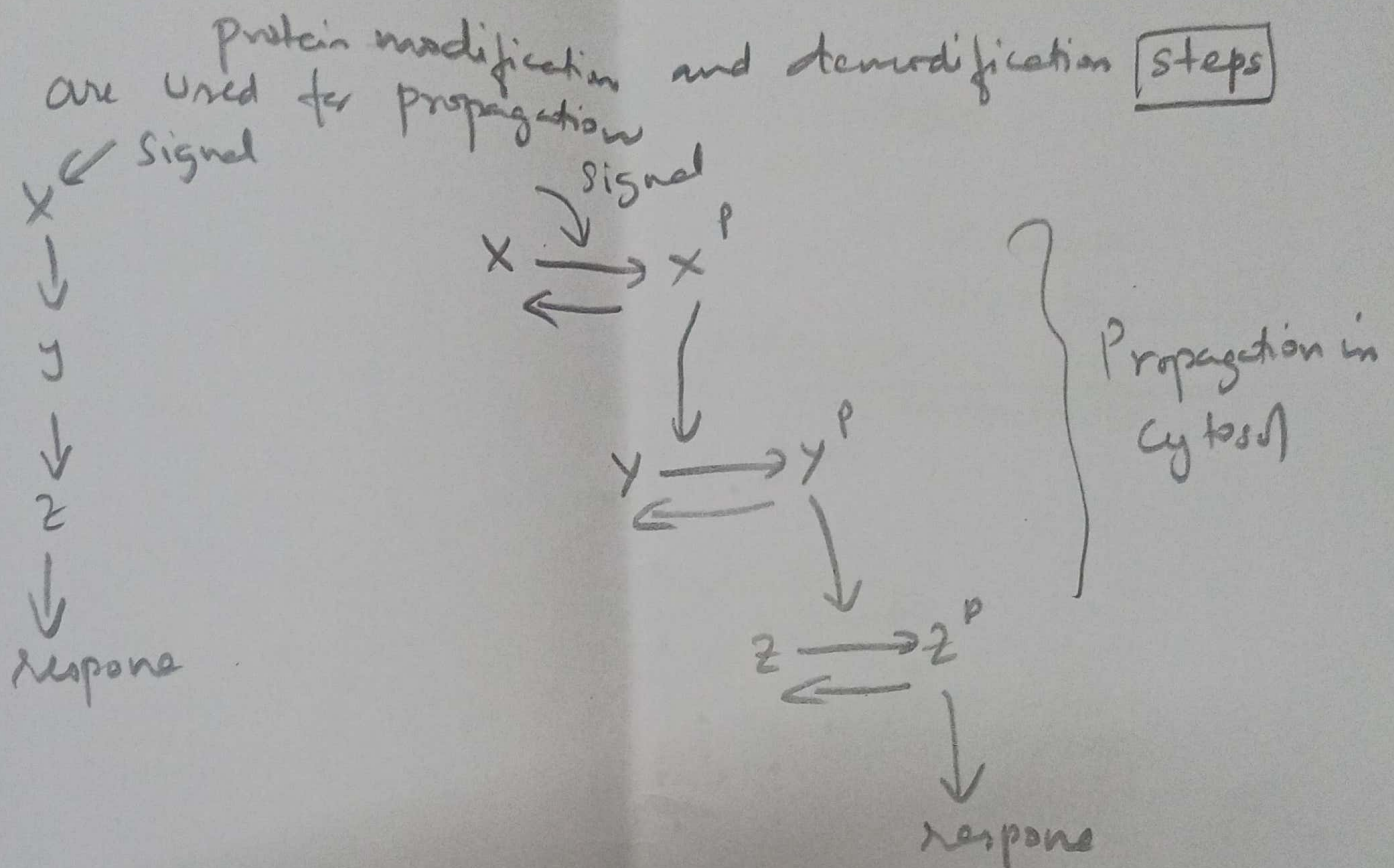 protein modification and demodification steps
are used for propagation
Signal
X
y
Z
respone
Signal
X X P
Y Y P
Z Z P
respone
Propagation in
Cytosol